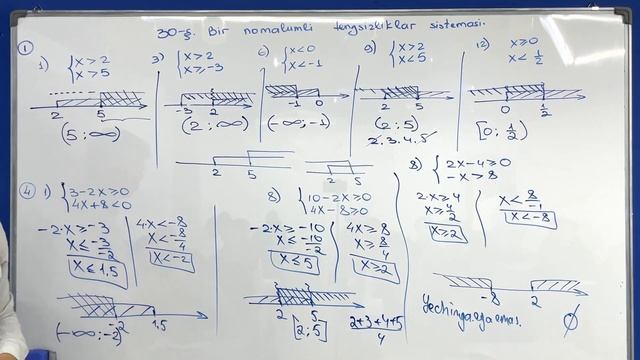 30-§. Bir nomalumli tengsizliklar sistemasi.
①
1) { x > 2
x > 5
2 5
(5; ∞)
3) { x > 2
x ≥ -3
-3 2
(2; ∞)
6) { x < 0
x < -1
-1 0
(-∞; -1)
9) { x > 2
x < 5
2 5
(2; 5)
2.3.4.5
12) x ≥ 0
x < 1/2
0 1/2
[0; 1/2)
2 5
2 5
④ 1) { 3-2x ≥ 0
4x+8 < 0
-2x ≥ -3
x ≤ -3/-2
x ≤ 1,5
4x < -8
x < -8/4
x < -2
-2 1,5
(-∞; -2)
8) { 10-2x ≥ 0
4x-8 ≥ 0
-2x ≥ -10
x ≤ -10/-2
x ≤ 5
4x ≥ 8
x ≥ 8/4
x ≥ 2
2 5
[2; 5]
2+3+4+5/4
8) { 2x-4 ≥ 0
-x > 8
2x ≥ 4
x ≥ 4/2
x ≥ 2
x < 8/-1
x < -8
-8 2
Yechimga ega emas. ∅